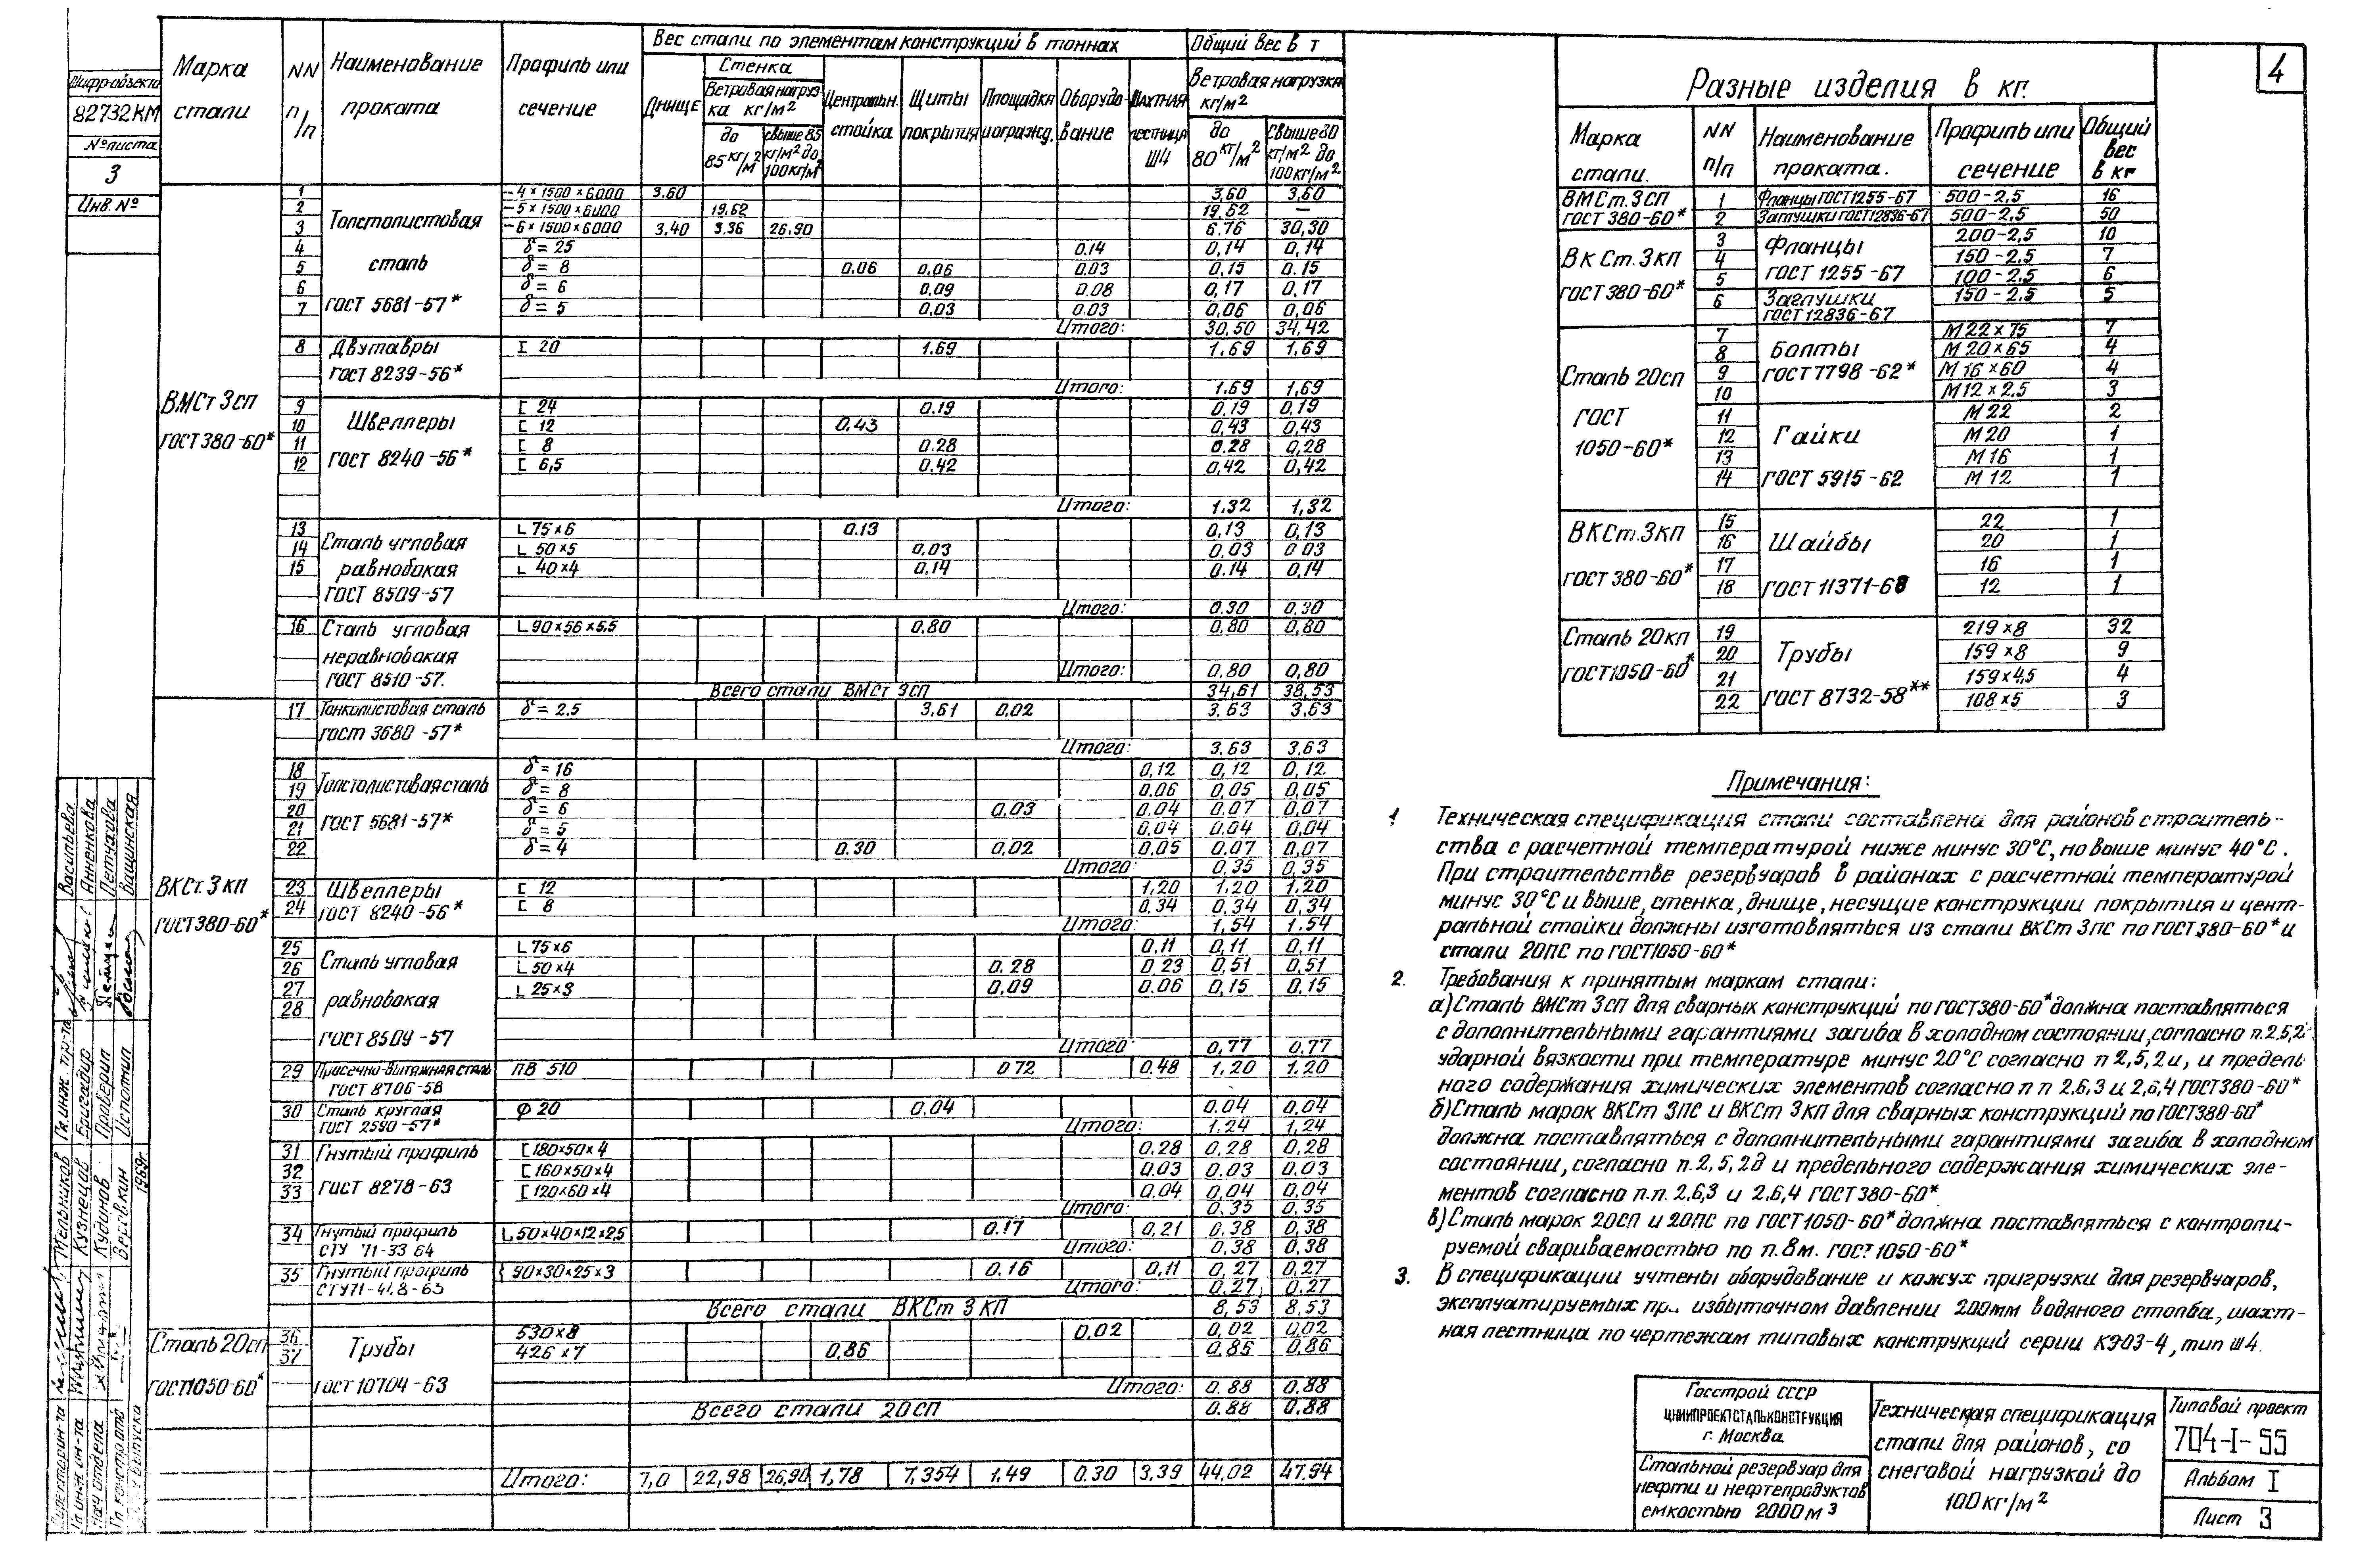 4
Шифр объекта
82732КМ
№ листа
3
Инв. №
Марка стали
NN п/п
Наименование проката
Профиль или сечение
Вес стали по элементам конструкций в тоннах
Общий вес в т
Днище
Стенка
Ветровая нагрузка кг/м²
до 85 кг/м²
свыше 85 кг/м² до 100 кг/м²
Центральн. стойка
Щиты покрытия
Площадки и огражд.
Оборудование
Шахтная лестница Ш4
Ветровая нагрузка кг/м²
до 80 кг/м²
свыше 80 кг/м² до 100 кг/м²
ВМСт 3сп ГОСТ 380-60*
Толстолистовая сталь ГОСТ 5681-57*
1 -4×1500×6000 3.60 3,60 3,60
2 -5×1500×6000 19.62 19,62 —
3 -6×1500×6000 3.40 3.36 26.90 6.76 30,30
4 δ=25 0.14 0,14 0,14
5 δ=8 0.06 0,06 0.03 0,15 0.15
6 δ=6 0,09 0.08 0,17 0,17
7 δ=5 0.03 0.03 0,06 0,06
Итого: 30,50 34,42
8 Двутавры ГОСТ 8239-56* I 20 1.69 1.69 1,69
Итого: 1.69 1,69
Швеллеры ГОСТ 8240-56*
9 [ 24 0.19 0.19 0,19
10 [ 12 0.43 0.43 0,43
11 [ 8 0.28 0.28 0,28
12 [ 6,5 0.42 0,42 0,42
Итого: 1.32 1,32
Сталь угловая равнобокая ГОСТ 8509-57
13 L 75×6 0.13 0.13 0,13
14 L 50×5 0,03 0,03 0 03
15 L 40×4 0,14 0.14 0,14
Итого: 0.30 0,30
16 Сталь угловая неравнобокая ГОСТ 8510-57. L 90×56×5,5 0,80 0,80 0,80
Итого: 0,80 0,80
Всего стали ВМСт 3сп 34,61 38,53
ВКСт. 3 кп ГОСТ 380-60*
17 Тонколистовая сталь ГОСТ 3680-57* δ=2.5 3,61 0,02 3,63 3,63
Итого: 3.63 3,63
Толстолистовая сталь ГОСТ 5681-57*
18 δ=16 0,12 0,12 0,12
19 δ=8 0.06 0,05 0,05
20 δ=6 0,03 0,04 0,07 0,07
21 δ=5 0,04 0,04 0,04
22 δ=4 0.30 0,02 0,05 0,07 0,07
Итого: 0,35 0,35
Швеллеры ГОСТ 8240-56*
23 [ 12 1,20 1,20 1.20
24 [ 8 0,34 0,34 0,34
Итого: 1,54 1.54
Сталь угловая равнобокая ГОСТ 8509-57
25 L 75×6 0,11 0,11 0,11
26 L 50×4 0.28 0.23 0,51 0,51
27 L 25×3 0,09 0.06 0,15 0.15
28
Итого 0,77 0,77
29 Просечно-вытяжная сталь ГОСТ 8706-58 ПВ 510 0 72 0.48 1,20 1.20
30 Сталь круглая ГОСТ 2590-57* Ф 20 0,04 0.04 0,04
Итого: 1,24 1,24
Гнутый профиль ГОСТ 8278-63
31 [ 180×50×4 0.28 0,28 0,28
32 [ 160×50×4 0,03 0.03 0,03
33 [ 120×60×4 0,04 0,04 0,04
Итого: 0.35 0,35
34 Гнутый профиль СТУ 71-33 64 L 50×40×12×2,5 0.17 0,21 0.38 0,38
Итого: 0,38 0.38
35 Гнутый профиль 90×30×25×3 0.16 0,11 0,27 0.27
Итого: 0.27 0.27
Всего стали ВКСт 3 КП 8,53 8,53
Сталь 20сп ГОСТ 1050-60*
Трубы ГОСТ 10704-63
36 530×8 0,02 0,02 0,02
37 426×7 0,86 0,86 0,86
Итого: 0.88 0.88
Всего стали 20СП 0.88 0.88
Итого: 7,0 22,98 26,90 1,78 7,354 1.49 0.30 3.39 44,02 47.94
Разные изделия в кг.
Марка стали.
NN п/п
Наименование проката.
Профиль или сечение
Общий вес в кг
ВМСт. 3сп ГОСТ 380-60*
1 Фланцы ГОСТ 1255-67 500-2,5 16
2 Заглушки ГОСТ 12836-67 500-2,5 50
ВК Ст. 3кп ГОСТ 380-60*
Фланцы ГОСТ 1255-67
3 200-2,5 10
4 150-2.5 7
5 100-2.5 6
6 Заглушки ГОСТ 12836-67 150-2.5 5
Сталь 20сп ГОСТ 1050-60*
Болты ГОСТ 7798-62*
7 М 22×75 7
8 М 20×65 4
9 М 16×60 4
10 М 12×2.5 3
Гайки ГОСТ 5915-62
11 М 22 2
12 М 20 1
13 М 16 1
14 М 12 1
ВКСт. 3кп ГОСТ 380-60*
Шайбы ГОСТ 11371-68
15 22 1
16 20 1
17 16 1
18 12 1
Сталь 20кп ГОСТ 1050-60*
Трубы ГОСТ 8732-58**
19 219×8 32
20 159×8 9
21 159×4,5 4
22 108×5 3
Примечания:
1 Техническая спецификация стали составлена для районов строитель-
ства с расчетной температурой ниже минус 30°С, но выше минус 40°С.
При строительстве резервуаров в районах с расчетной температурой
минус 30°С и выше, стенка, днище, несущие конструкции покрытия и цент-
ральной стойки должны изготовляться из стали ВКСт 3пс по ГОСТ 380-60* и
стали 20ПС по ГОСТ 1050-60*
2. Требования к принятым маркам стали:
а) Сталь ВМСт 3сп для сварных конструкций по ГОСТ 380-60* должна поставляться
с дополнительными гарантиями загиба в холодном состоянии, согласно п. 2.5,2
ударной вязкости при температуре минус 20°С согласно п 2,5,2и, и предель
ного содержания химических элементов согласно п п 2.6,3 и 2,6,4 ГОСТ 380-60*
б) Сталь марок ВКСт 3ПС и ВКСт 3кп для сварных конструкций по ГОСТ 380-60*
должна поставляться с дополнительными гарантиями загиба в холодном
состоянии, согласно п. 2,5,2д и предельного содержания химических эле-
ментов согласно п.п. 2,6,3 и 2.6,4 ГОСТ 380-60*
в) Сталь марок 20СП и 20ПС по ГОСТ 1050-60* должна поставляться с контроли-
руемой свариваемостью по п. 8м. ГОСТ 1050-60*
3. В спецификации учтены оборудование и кожух пригрузки для резервуаров,
эксплуатируемых при избыточном давлении 200мм водяного столба, шахт-
ная лестница по чертежам типовых конструкций серии КЭ03-4, тип Ш4.
Госстрой СССР
ЦНИИПРОЕКТСТАЛЬКОНСТРУКЦИЯ
г. Москва
Стальной резервуар для
нефти и нефтепродуктов
емкостью 2000 м³
Техническая спецификация
стали для районов, со
снеговой нагрузкой до
100 кг/м²
Типовой проект
704-I-55
Альбом I
Лист 3
Гл. инж. пр-та Васильева
Бригадир Анненкова
Проверил Петухова
Исполнил Ващинская
Мельников
Кузнецов
Нач отдела Кудинов
Гл. констр. отд Веревкин
1969г